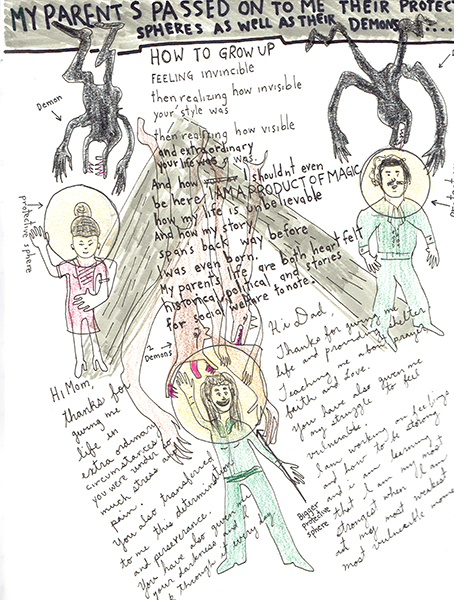 MY PARENTS PASSED ON TO ME THEIR PROTEC
SPHERES AS WELL AS THEIR DEMONS....
HOW TO GROW UP
FEELING invincible
then realizing how invisible
your style was
then realizing how visible
and extraordinary
your life was was
And how shouldn't even
be here, I AM A PRODUCT OF MAGIC
how my life is unbelievable
And how my story
spans back way before
I was even born.
My parents' life are both heart felt
historical, political and stories
for social welfare to note.
Demon
protective sphere
2 Demons
Hi Mom,
thanks for
giving me
life in
extra ordinary
circumstances
you were under so
much stress
pain.
You also transferred
to me this determination
and perseverance.
You have also given me
your darkness and
through it every day
Hi Dad,
Thanks for giving me
life and providing shelter
Teaching me about prayer
faith and love.
You have also given me
my struggle to feel
vulnerable.
I am working on feelings
and how to be strong
and is am learning
that I am my most
strongest when I am
at my most weakest
most vulnerable mome
Bigger
protective
sphere